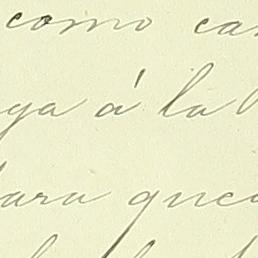 como ca
ga á la
para que